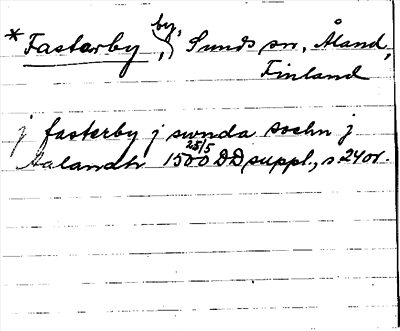 *Fastarby, by, Sunds sn, Åland,
Finland
j fasterby j swnda sochn j
Aalandh 1500 25/5 DD suppl., s 240r.